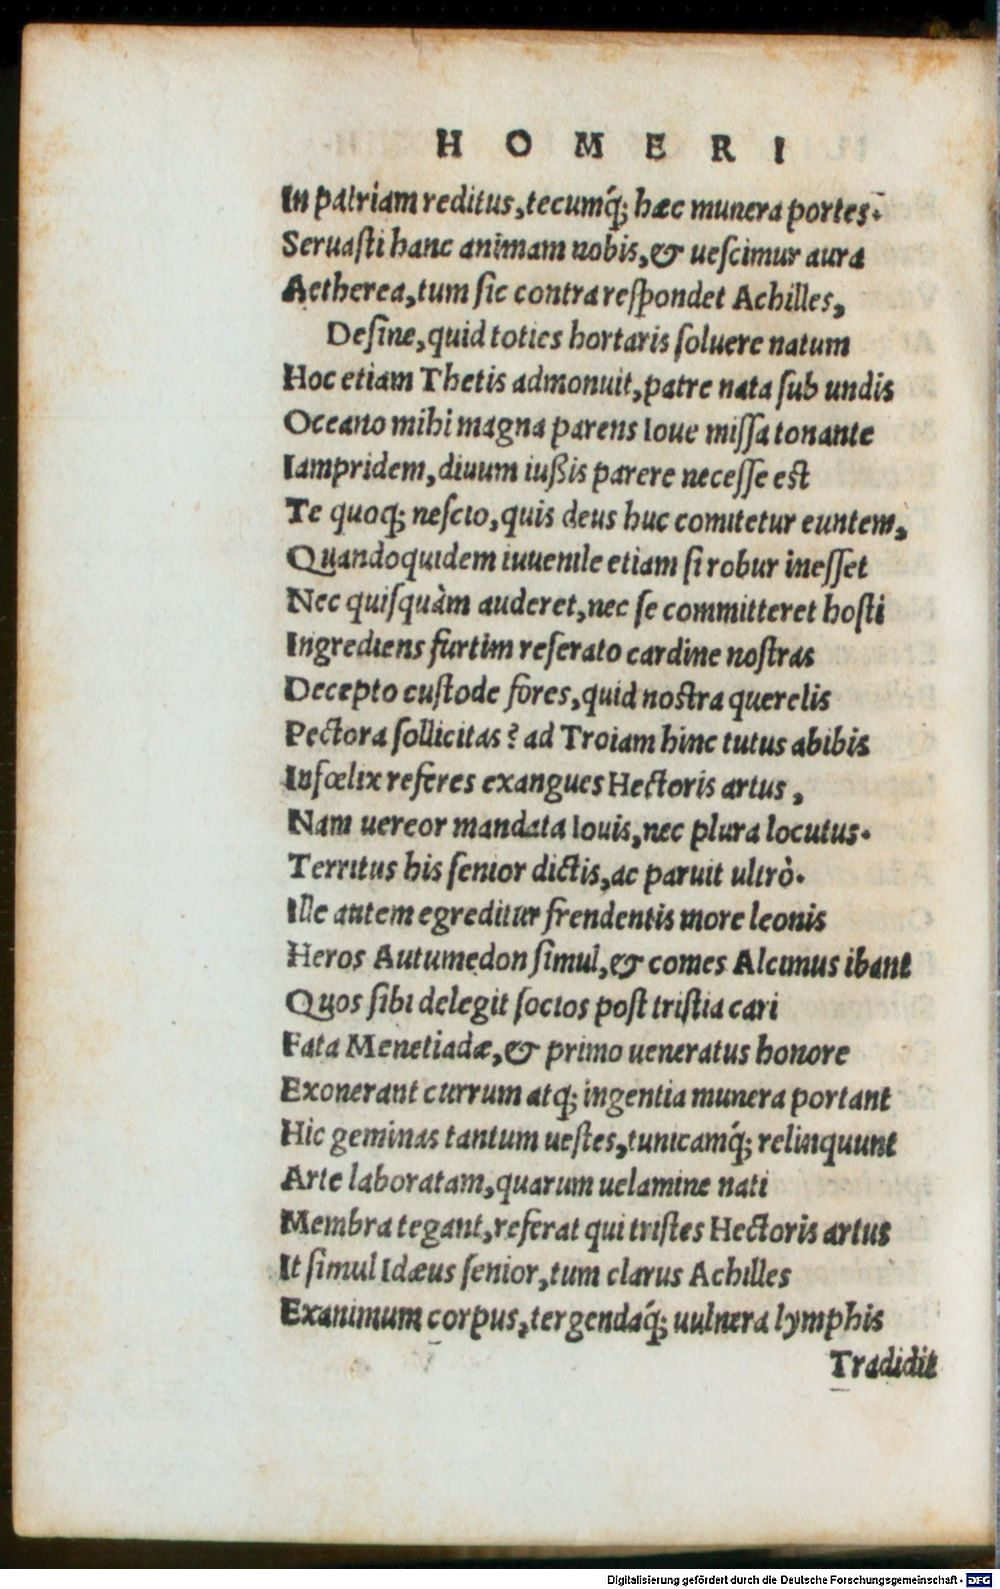 H O M E R I
In patriam reditus,tecumq́; hæc munera portes.
Seruaſti hanc animam nobis,& ueſcimur aura
Aetherea,tum ſic contra reſpondet Achilles,
Deſine,quid toties hortaris ſoluere natum
Hoc etiam Thetis admonuit,patre nata ſub undis
Oceano mihi magna parens Ioue miſſa tonante
Iampridem,diuum iußis parere neceſſe est
Te quoq; neſcio,quis deus huc comitetur euntem,
Quandoquidem iuuenile etiam ſi robur ineſſet
Nec quiſquàm auderet,nec ſe committeret hoſti
Ingrediens furtim reſerato cardine noſtras
Decepto cuſtode fores,quid nostra querelis
Pectora ſollicitas? ad Troiam hinc tutus abibis
Infœlix referes exangues Hectoris artus,
Nam uereor mandata Iouis,nec plura locutus.
Territus his ſenior dictis,ac paruit ultrò.
Ille autem egreditur frendentis more leonis
Heros Autumedon ſimul,& comes Alcimus ibant
Quos ſibi delegit ſocios poſt triſtia cari
Fata Menetiadæ,& primo ueneratus honore
Exonerant currum atq; ingentia munera portant
Hic geminas tantum ueſtes,tunicamq́; relinquunt
Arte laboratam,quarum uelamine nati
Membra tegant,referat qui triſtes Hectoris artus
It ſimul Idæus ſenior,tum clarus Achilles
Exanimum corpus,tergendaq́; uulnera lymphis
Tradidit
Digitalisierung gefördert durch die Deutsche Forschungsgemeinschaft - DFG